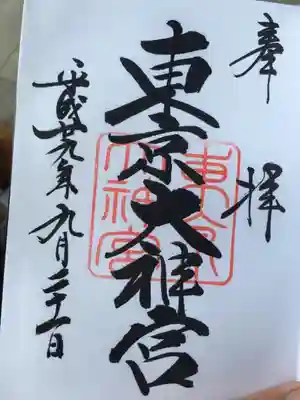 奉拝
東京大神宮
東京
大神宮
平成廿九年九月二十一日